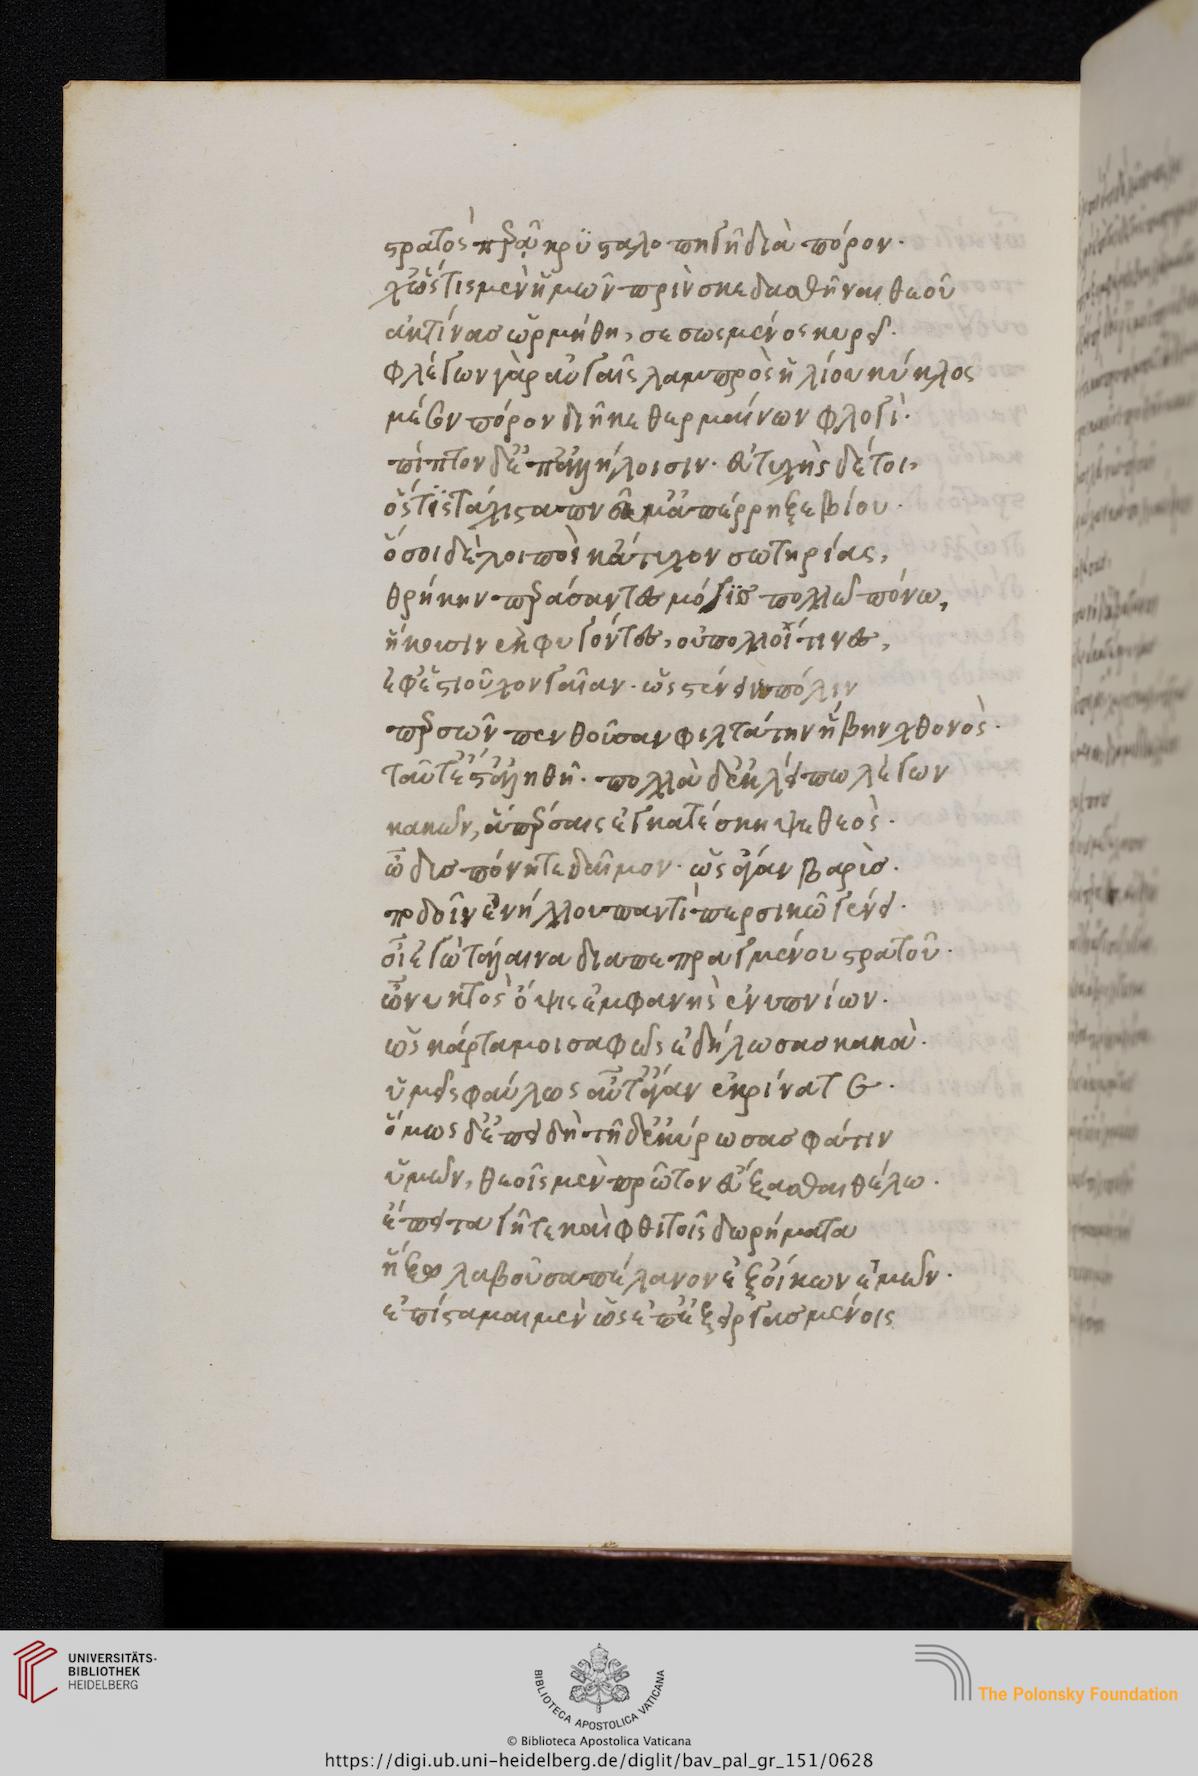 στρατὸς περᾷ κρυσταλοπῆγα διὰ πόρον.
χὥστις μὲν ἡμῶν πρὶν σκεδασθῆναι θεοῦ
ἀκτίνας ὡρμήθη, σεσωσμένος κυρεῖ.
φλέγων γὰρ αὐγαῖς λαμπρὸς ἡλίου κύκλος
μέσον πόρον διῆκε θερμαίνων φλογί.
πίπτον δ' ἐπ' ἀλλήλοισιν. εὐτυχὴς δέ τοι,
ὅστις τάχιστα πνεῦμ' ἀπέρρηξε βίου.
ὅσοι δὲ λοιποὶ κἄτυχον σωτηρίας,
θρήκην περάσαντες μόγις πολλῷ πόνῳ,
ἥκουσιν ἐκφυγόντες, οὐ πολλοί τινες,
ἐφ' ἑστιοῦχον γαῖαν. ὡς στένειν πόλιν
περσῶν ποθοῦσαν φιλτάτην ἥβην χθονός.
ταῦτ' ἔστ' ἀληθῆ. πολλὰ δ' ἐκλείπω λέγων
κακῶν, ἃ πέρσαις ἐγκατέσκηψε θεός.
ὦ δυσπόνητε δαῖμον. ὡς ἄγαν βαρὺς.
ποδοῖν ἐνήλλου παντὶ περσικῷ γένει.
οἲ ἐγὼ τάλαινα διαπεπραγμένου στρατοῦ.
ὦ νυκτὸς ὄψις ἐμφανὴς ἐνυπνίων.
ὡς κάρτα μοι σαφῶς ἐδήλωσας κακά.
ὑμεῖς φαύλως αὔτ' ἄγαν ἐκρίνατε.
ὅμως δ' ἐπειδὴ τῇδ' ἐκύρωσας φάτιν
ὑμῶν, θεοῖς μὲν πρῶτον εὔξασθαι θέλω.
ἔπειτα γῇ τε καὶ φθιτοῖς δωρήματα
ἥξω λαβοῦσα πέλανον ἐξ οἴκων ἐμῶν.
ἐπίσταμαι μὲν ὡς ἐπ' ἐξειργασμένοις
UNIVERSITÄTS-
BIBLIOTHEK
HEIDELBERG
BIBLIOTECA APOSTOLICA VATICANA
The Polonsky Foundation
© Biblioteca Apostolica Vaticana
https://digi.ub.uni-heidelberg.de/diglit/bav_pal_gr_151/0628